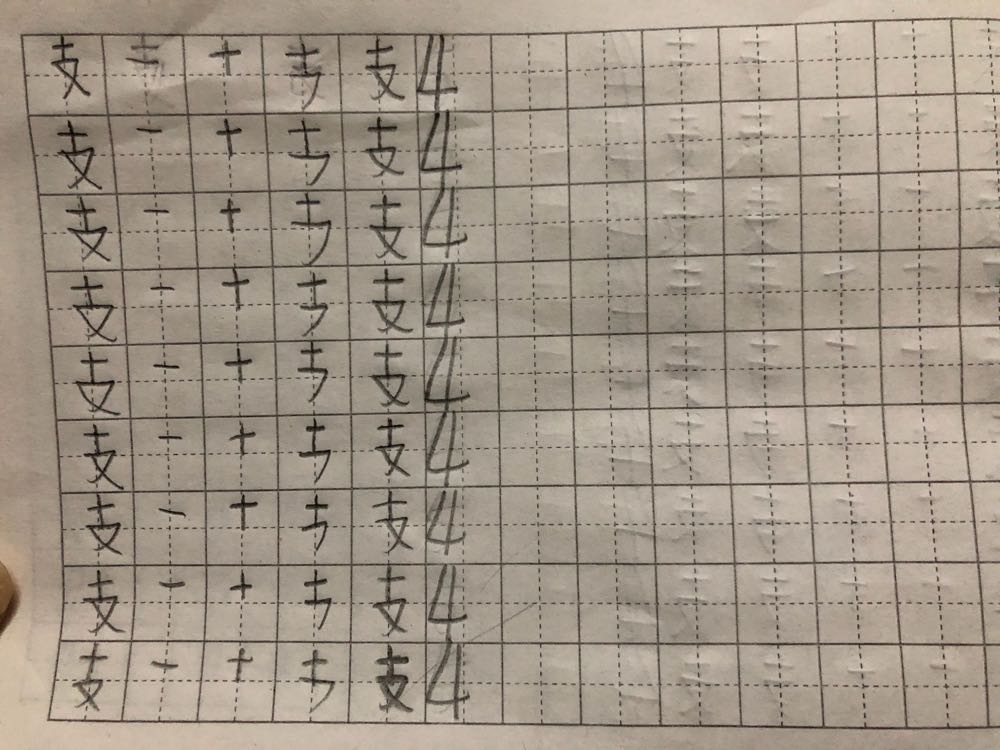 支 十 支 4
支 一 十 支 4
支 一 十 支 4
支 一 十 支 4
支 一 十 支 4
支 一 十 支 4
支 一 十 支 4
支 一 十 支 4
支 一 十 支 4